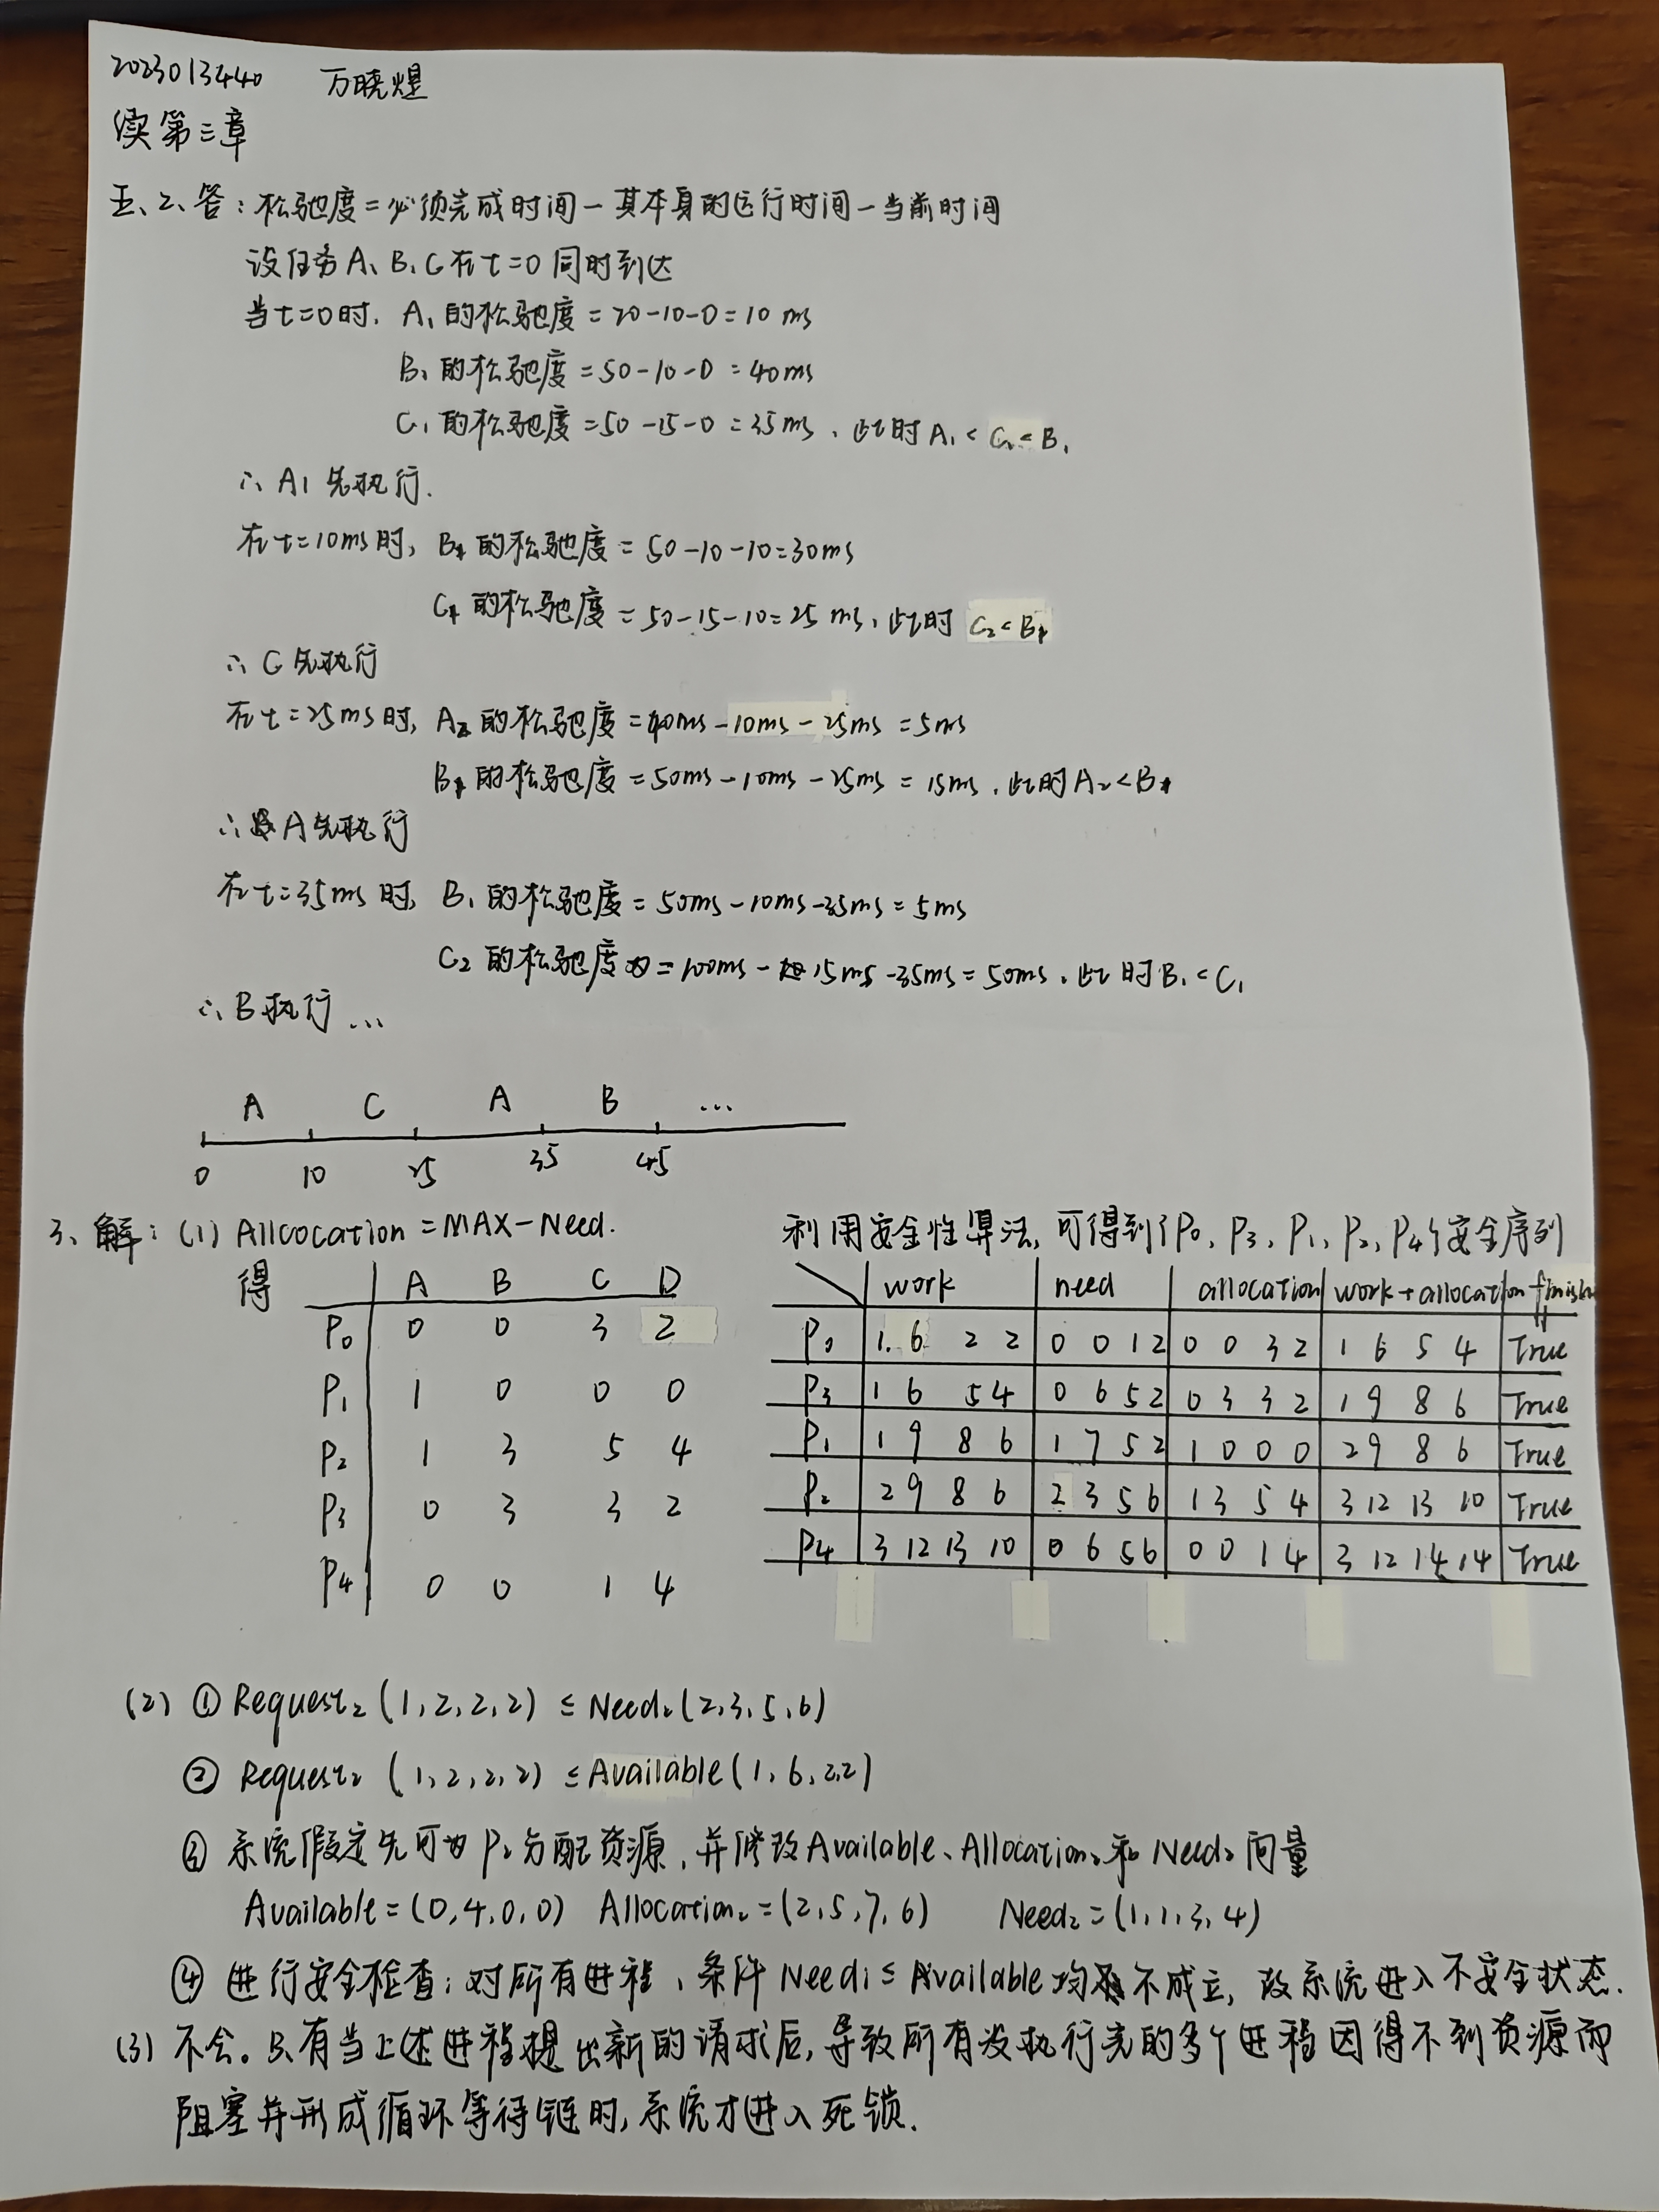 2023013440 万晓煜
续第三章
五、2、答：松驰度=必须完成时间-其本身的运行时间-当前时间
设任务A、B、C在t=0同时到达
当t=0时, A₁的松驰度=20-10-0=10 ms
B₁的松驰度=50-10-0=40ms
C₁的松驰度=50-15-0=35ms, 此时A₁<C₁<B₁
∴A1先执行.
在t=10ms时, B₁的松驰度=50-10-10=30ms
C₁的松驰度=50-15-10=25 ms, 此时 C₂<B₁
∴C先执行
在t=25ms时, A₂的松驰度=40ms-10ms-25ms=5ms
B₁的松驰度=50ms-10ms-25ms=15ms, 此时A₂<B₁
∴A先执行
在t=35ms时, B₁的松驰度=50ms-10ms-35ms=5ms
C₂的松驰度=100ms-15ms-35ms=50ms, 此时B₁<C₁
∴B执行...
A C A B ...
0 10 25 35 45
3、解：(1) Allcocation=MAX-Need.
得 A B C D
P₀ 0 0 3 2
P₁ 1 0 0 0
P₂ 1 3 5 4
P₃ 0 3 3 2
P₄ 0 0 1 4
利用安全性算法, 可得到{P₀, P₃, P₁, P₂, P₄}安全序列
work need allocation work+allocation finish
P₀ 1. 6 2 2 0 0 1 2 0 0 3 2 1 6 5 4 True
P₃ 1 6 5 4 0 6 5 2 0 3 3 2 1 9 8 6 True
P₁ 1 9 8 6 1 7 5 2 1 0 0 0 2 9 8 6 True
P₂ 2 9 8 6 2 3 5 6 1 3 5 4 3 12 13 10 True
P₄ 3 12 13 10 0 6 5 6 0 0 1 4 3 12 14 14 True
(2) ① Request₂(1,2,2,2)≤Need₂(2,3,5,6)
② Request₂(1,2,2,2)≤Available(1,6,2,2)
③ 系统假定先可为P₂分配资源, 并修改Available、Allocation₂和Need₂向量
Available=(0,4,0,0) Allocation₂=(2,5,7,6) Need₂=(1,1,3,4)
④ 进行安全检查：对所有进程、条件Needi≤Available均不成立, 故系统进入不安全状态.
(3) 不会。只有当上述进程提出新的请求后, 导致所有没执行完的多个进程因得不到资源而
阻塞并形成循环等待链时, 系统才进入死锁.